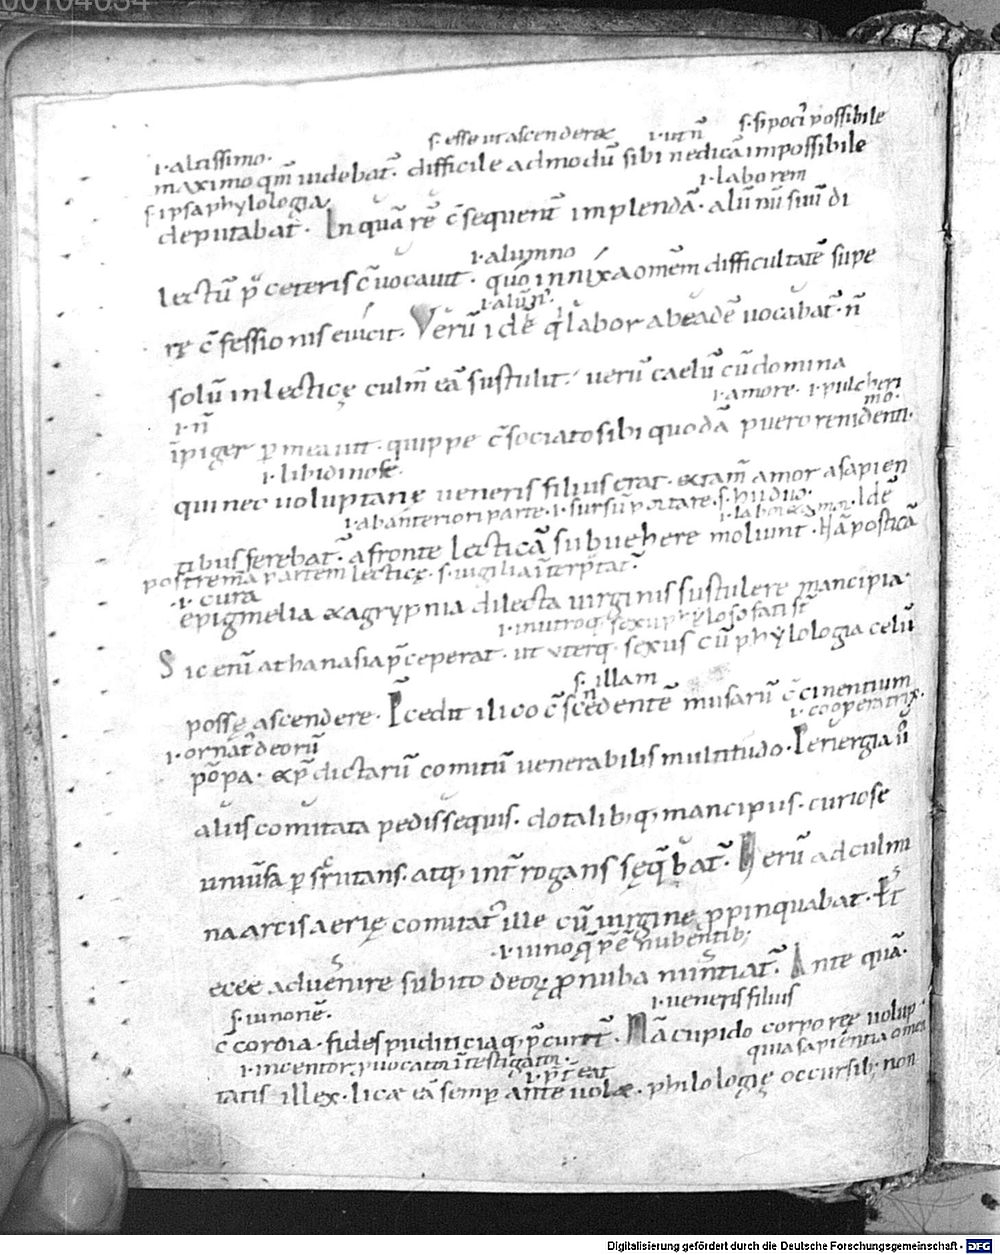 00104634
s. esse ut ascenderet .i. ut n̄ s. si poci possibile
.i. altissimo.
maximo qm̄ uidebat᷒. difficile admodū sibi nedicā impossibile
s. ipsa phylologia .i. laborem
deputabat᷒. In quā rē c̄sequent᷒ implendā. alūnū suū di
.i. alumno
lectū p̄ ceteris c̄uocauit. quo innixa omēm difficultatē supe
.i. alūn᷒.
rę c̄fessionis euicit. Verū idē q̄ labor ab eadē uocabat᷒. n̄
solū in lecticę culm̄ eā sustulit. uerū caelū cū domina
.i. n̄ .i. amore. .i. pulcheri
mo.
īpiger p meauit. quippe c̄sociato sibi quodā puero renidenti.
.i. libidinose.
qui nec uoluptarię ueneris filius erat. & tam̄ amor a sapien
.i. ab anteriori parte .i. sursū portare. s. hii duo. .i. labor & amor. Idē
tibus ferebat᷒. a fronte lecticā subuehere moliunt. Nā posticā
postremā partem lecticę. s. uigilia īterp̄tat᷒.
.i. cura
epigmelia & agrypnia dilecta uirginis sustulere mancipia.
.i. in utroq; sexu phylosofati st̄
Sic enī athanasia p̄ceperat. ut uterq; sexus cū phylologia celū
s. illam
possę ascendere. P̄cedit ilico c̄scendentē musarū c̄cinentium
.i. ornat᷒ deorū .i. cooperatrix.
pōpa. & p̄dictarū comitū uenerabilis multitudo. Periergia ū
aliis comitata pedissequis. dotalib; q; mancipiis. curiose
uniūsa p scrutans. atq; int̄rogans sęq̄bat᷒. Verū ad culmi
na arcis aerię comitat᷒ ille cū uirginę ppinquabat. Et
.i. iuno q̄ p̄ē nubentib;
ecce aduenire subito deorę pnuba nuntiat᷒. Ante quā.
s. iunonē. .i. ueneris filius
c̄cordia. fides pudicitia q; p̄currt̄. Nā cupido corporeę uolup
.i. incentor puocator īuestigator. .i. p̄t eat quia sapientia omēs
tatis illex. lic& eā semp ante uol&. philologię occursib; non
Digitalisierung gefördert durch die Deutsche Forschungsgemeinschaft - DFG